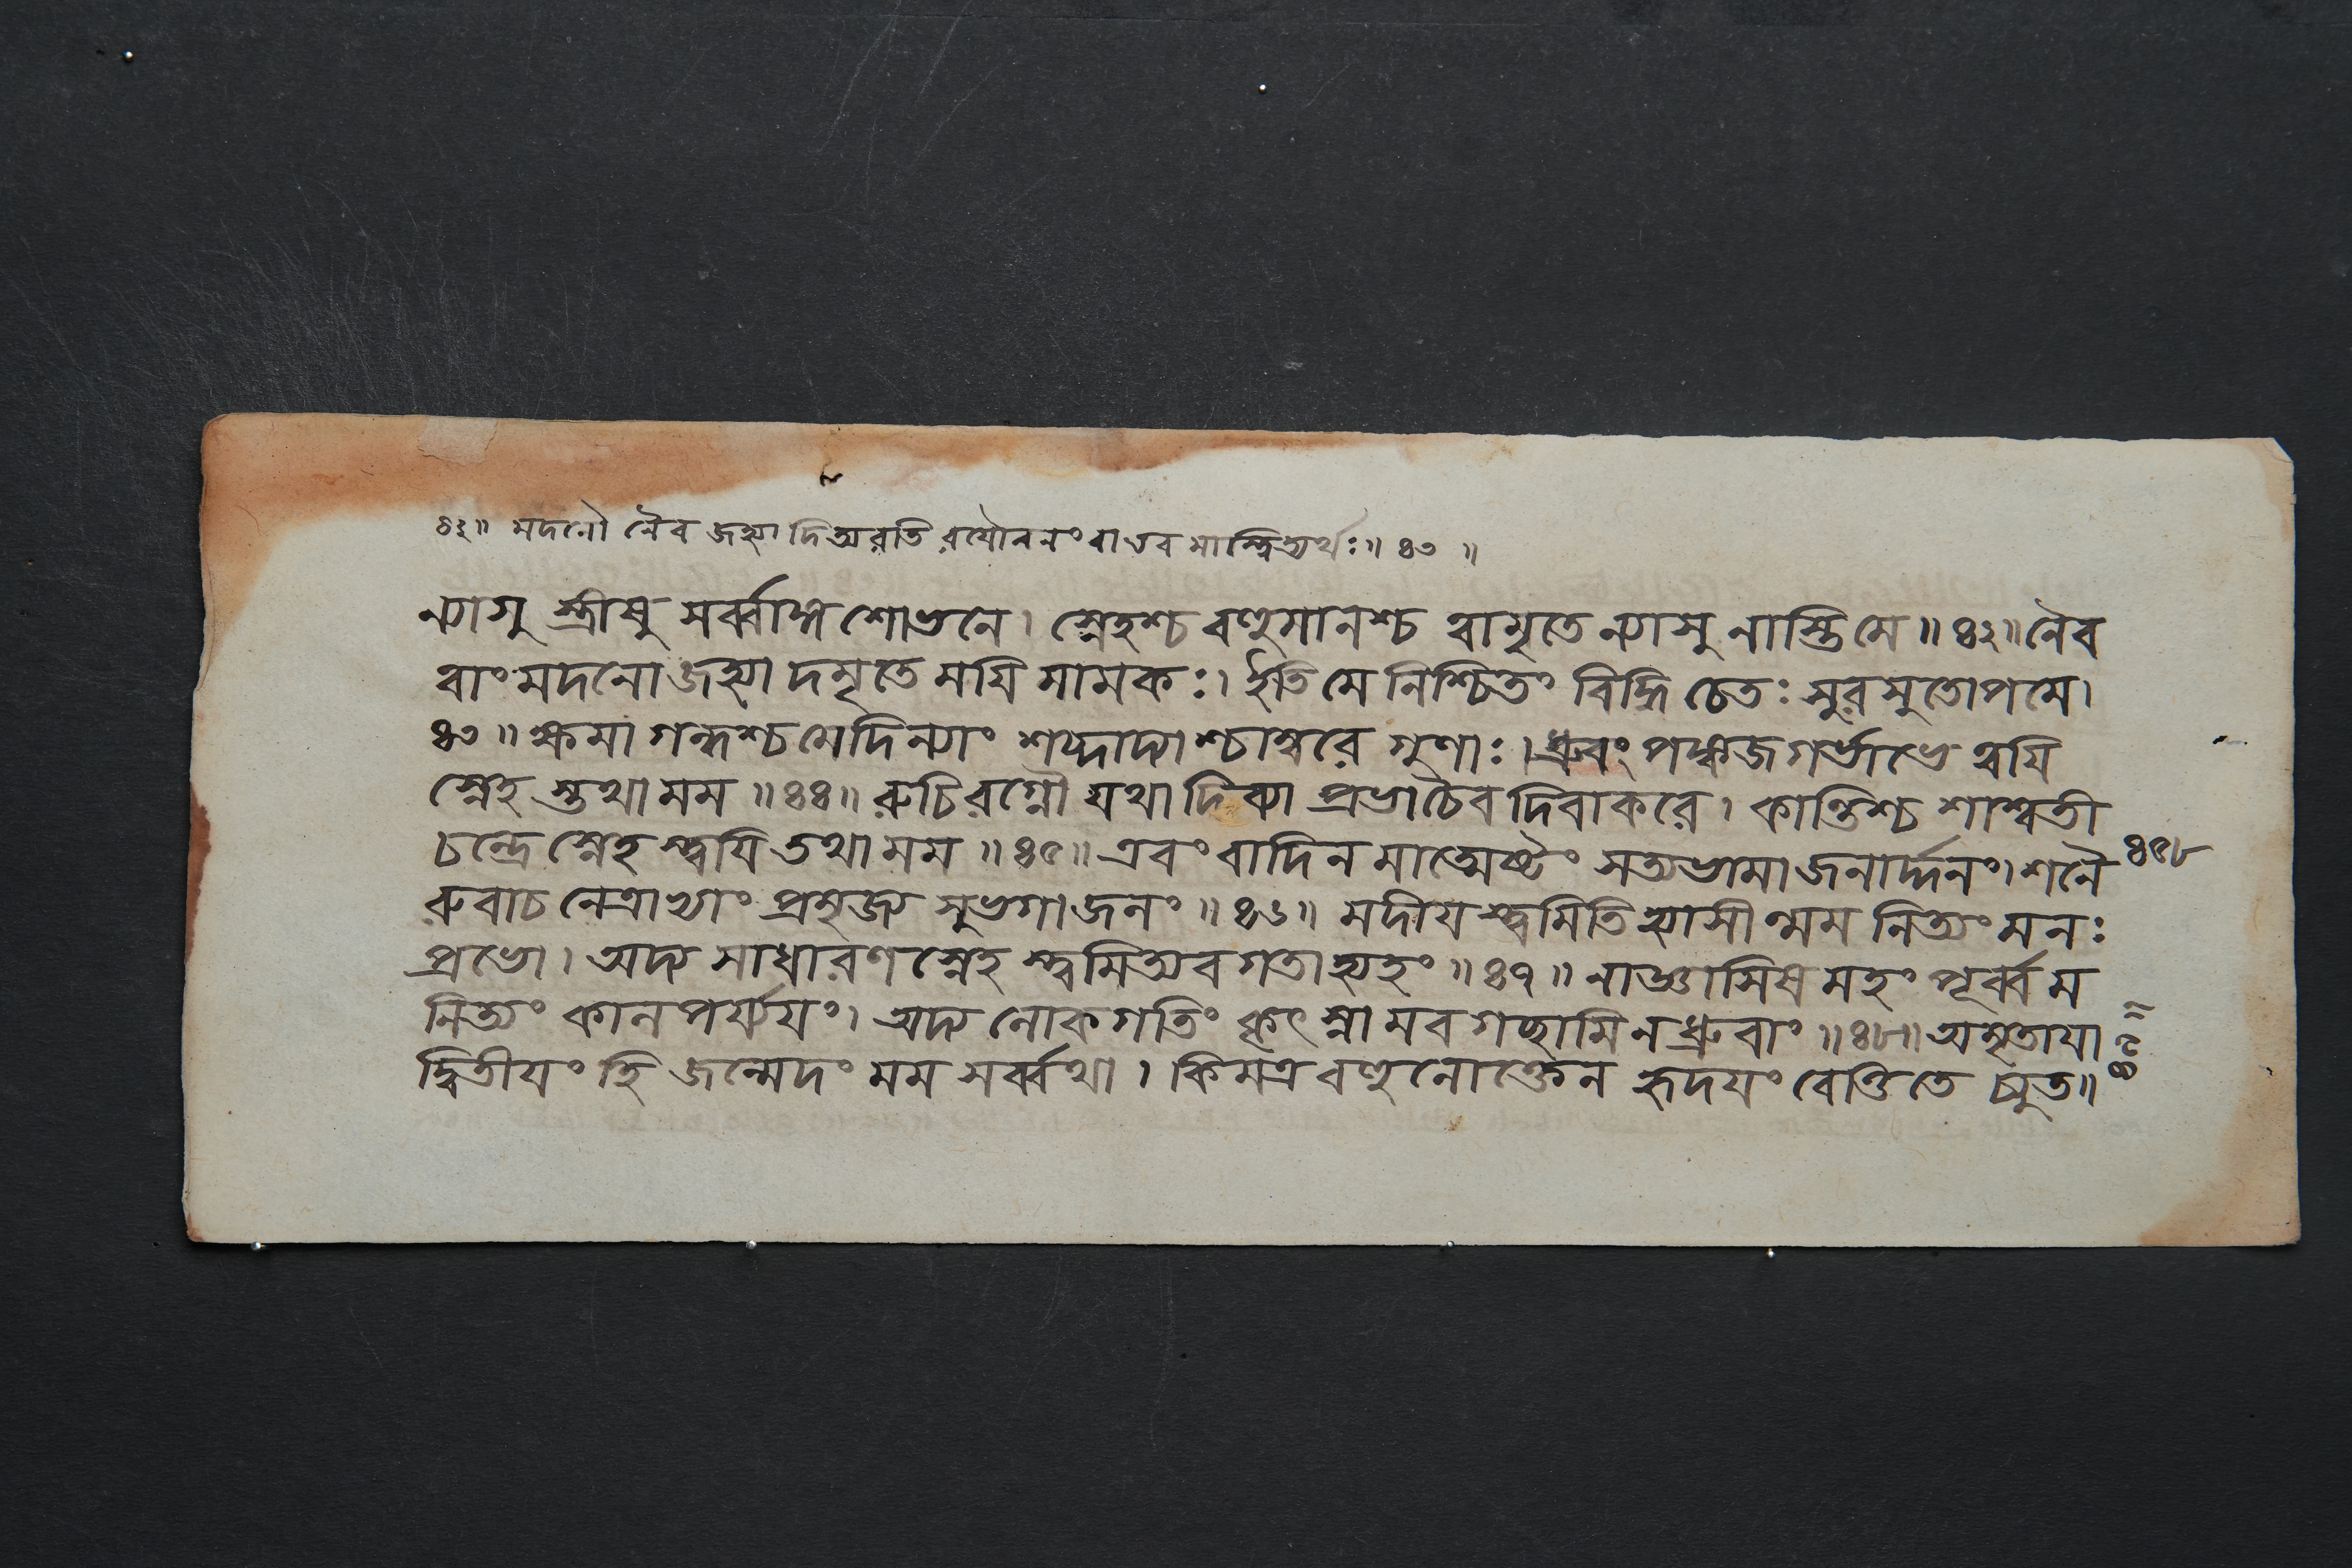 ৪২॥ মদনৌ নৈব জহ্যাদিত্যরতি বযৌবনং বা এব মাস্ত্বিত্যর্থঃ॥ ৪৩ ॥
ন্যাসু স্ত্রীষু সর্ব্বাঙ্গশোভনে। স্নেহশ্চ বহুমানশ্চ ত্বামৃতে ন্যাসু নাস্তি মে॥ ৪২॥ নৈব
ত্বাং মদনো জহ্যাদমৃতে ময়ি মামকঃ। ইতি মে নিশ্চিতং বিদ্ধি চেতঃ সুরসুতোপমে।
৪৩॥ ক্ষমা গন্ধশ্চ মেদিন্যাং শব্দাদ্যাশ্চাম্বরে গুণাঃ। ধ্রুবং পঙ্কজগর্ভাভে ত্বয়ি
স্নেহ স্তথা মম॥ ৪৪॥ রুচিরগ্নৌ যথা দিব্যা প্রভা চৈব দিবাকরে। কান্তিশ্চ শাশ্বতী
চন্দ্রে স্নেহ স্ত্বয়ি তথা মম॥ ৪৫॥ এবং বাদিন মাত্মেষ্টং সত্যভামা জনার্দ্দনং। শনৈ
রুবাচ নেত্রাভ্যাং প্রমৃজ্য সুভগা জনং॥ ৪৬॥ মদীয স্ত্বমিতি হ্যাসীন্মম নিত্যং মনঃ
প্রভো। অদ্য সাধারণস্নেহ স্ত্বমিত্যবগতা হ্যহং॥ ৪৭॥ নাজ্ঞাসিষমহং পূর্ব্বম
নিত্যং কালপর্য্যযং। অদ্য লোকগতিং কৃৎস্নামবগচ্ছামি ন ধ্রুবাং॥ ৪৮॥ অমৃতাযা
দ্বিতীযং হি জন্মেদং মম সর্ব্বথা। কিমত্র বহুনোক্তেন হৃদযং বেত্তি তে চ্যুত॥
৪৫৮
৪৯॥